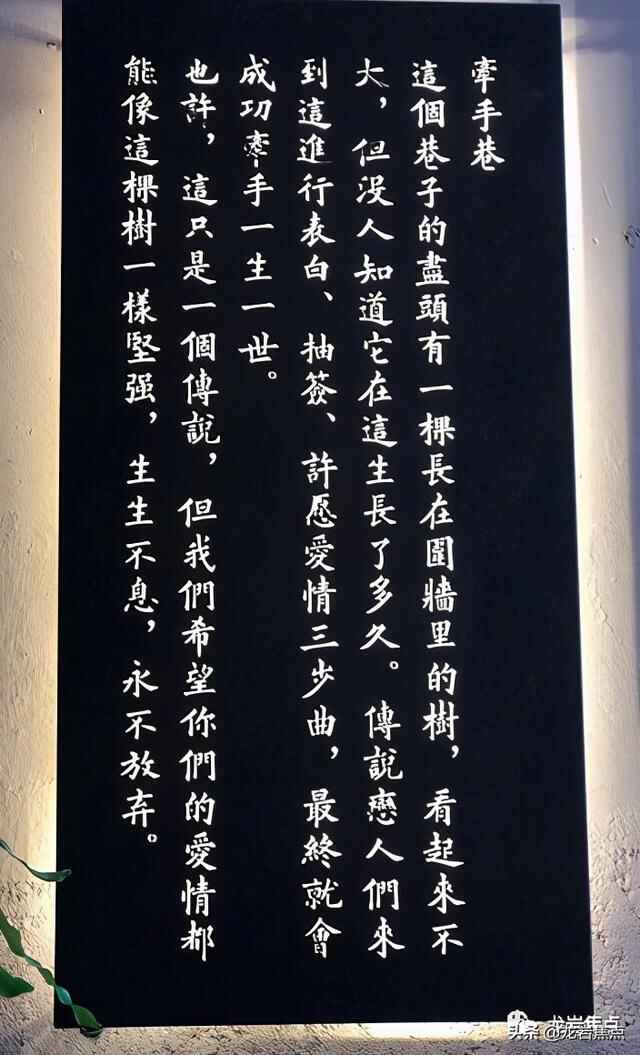 牽手巷
這個巷子的盡頭有一棵長在圍牆里的樹，看起來不
大，但没人知道它在這生長了多久。傳說戀人們來
到這進行表白、抽簽、許愿愛情三步曲，最終就會
成功牽手一生一世。
也許，這只是一個傳說，但我們希望你們的愛情都
能像這棵樹一樣堅强，生生不息，永不放弃。
龙岩焦点
头条 @龙岩焦点